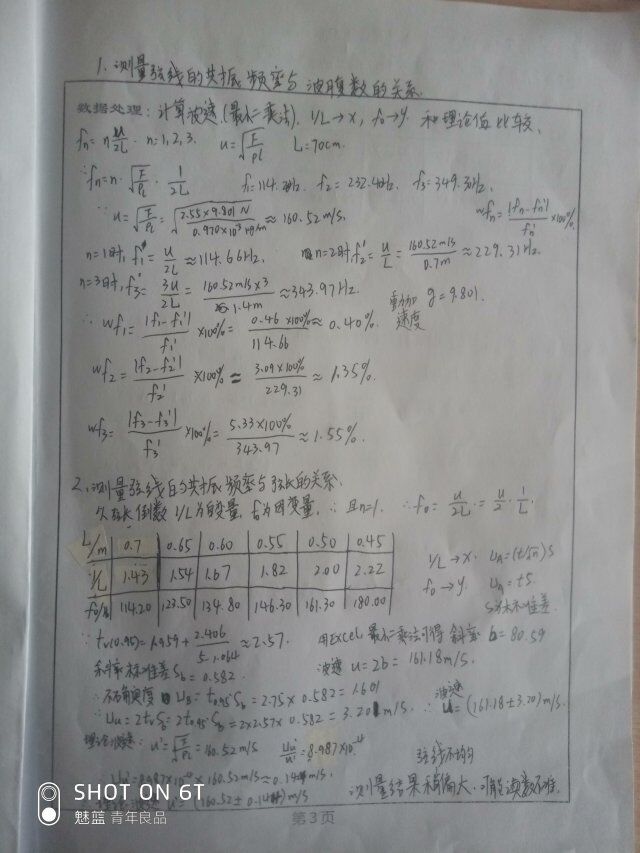 1. 测量弦线的共振频率与波腹数的关系.
数据处理: 计算波速(最小二乘法), 1/L→x, f₀→y. 和理论值比较.
fn = n u/2L · n=1,2,3. u=√(F/ρl) L=70cm.
∵fn=n·√(F/ρl)·1/2L f₁=114.2Hz. f₂=232.4Hz. f₃=349.3Hz.
∴u=√(F/ρl)=√(2.55×9.801N/0.970×10⁻³kg/m)≈160.52m/s. wfn=|fn-fn'|/fn'×100%.
n=1时, f₁'=u/2L≈114.66Hz. n=2时 f₂'=u/L=160.52m/s/0.7m≈229.31Hz.
n=3时, f₃'=3u/2L=160.52m/s×3/1.4m≈343.97Hz. 重力加速度 g=9.801.
∴wf₁=|f₁-f₁'|/f₁'×100%=0.46×100%/114.66≈0.40%.
wf₂=|f₂-f₂'|/f₂'×100%=3.09×100%/229.31≈1.35%.
wf₃=|f₃-f₃'|/f₃'×100%=5.33×100%/343.97≈1.55%.
2. 测量弦线的共振频率与弦长的关系.
弦长倒数 1/L为自变量, f为因变量, ∵且n=1. ∴f₀=u/2L=u/2·1/L.
L/m 0.7 0.65 0.60 0.55 0.50 0.45
1/L 1.43 1.54 1.67 1.82 2.00 2.22
f₀/Hz 114.20 123.50 134.80 146.30 161.30 180.00
1/L→x. uA=(t/√n)S
f₀→y. uA=tS.
S为标准差.
∵tv(0.95)=1.959+2.406/5-1.064≈2.57. 用Excel最小二乘法可得 斜率 b=80.59
斜率标准差Sb=0.582. 波速 u=2b=161.18m/s.
∴不确定度 UB=t0.95 Sb=2.75×0.582=1.601
∴Uu=2tvSb=2t0.95Sb=2×2.57×0.582=3.20m/s. ∴波速u=(161.18±3.20)m/s.
理论波速: u'=√(F/ρl)=160.52m/s Uu'/u'=8.987×10⁻⁴
Uu'=8.987×10⁻⁴×160.52m/s≈0.14m/s. 弦线不均匀
u'=(160.52±0.14)m/s 测量结果稍偏大, 可能读数不准.
第3页
SHOT ON 6T
魅蓝 青年良品